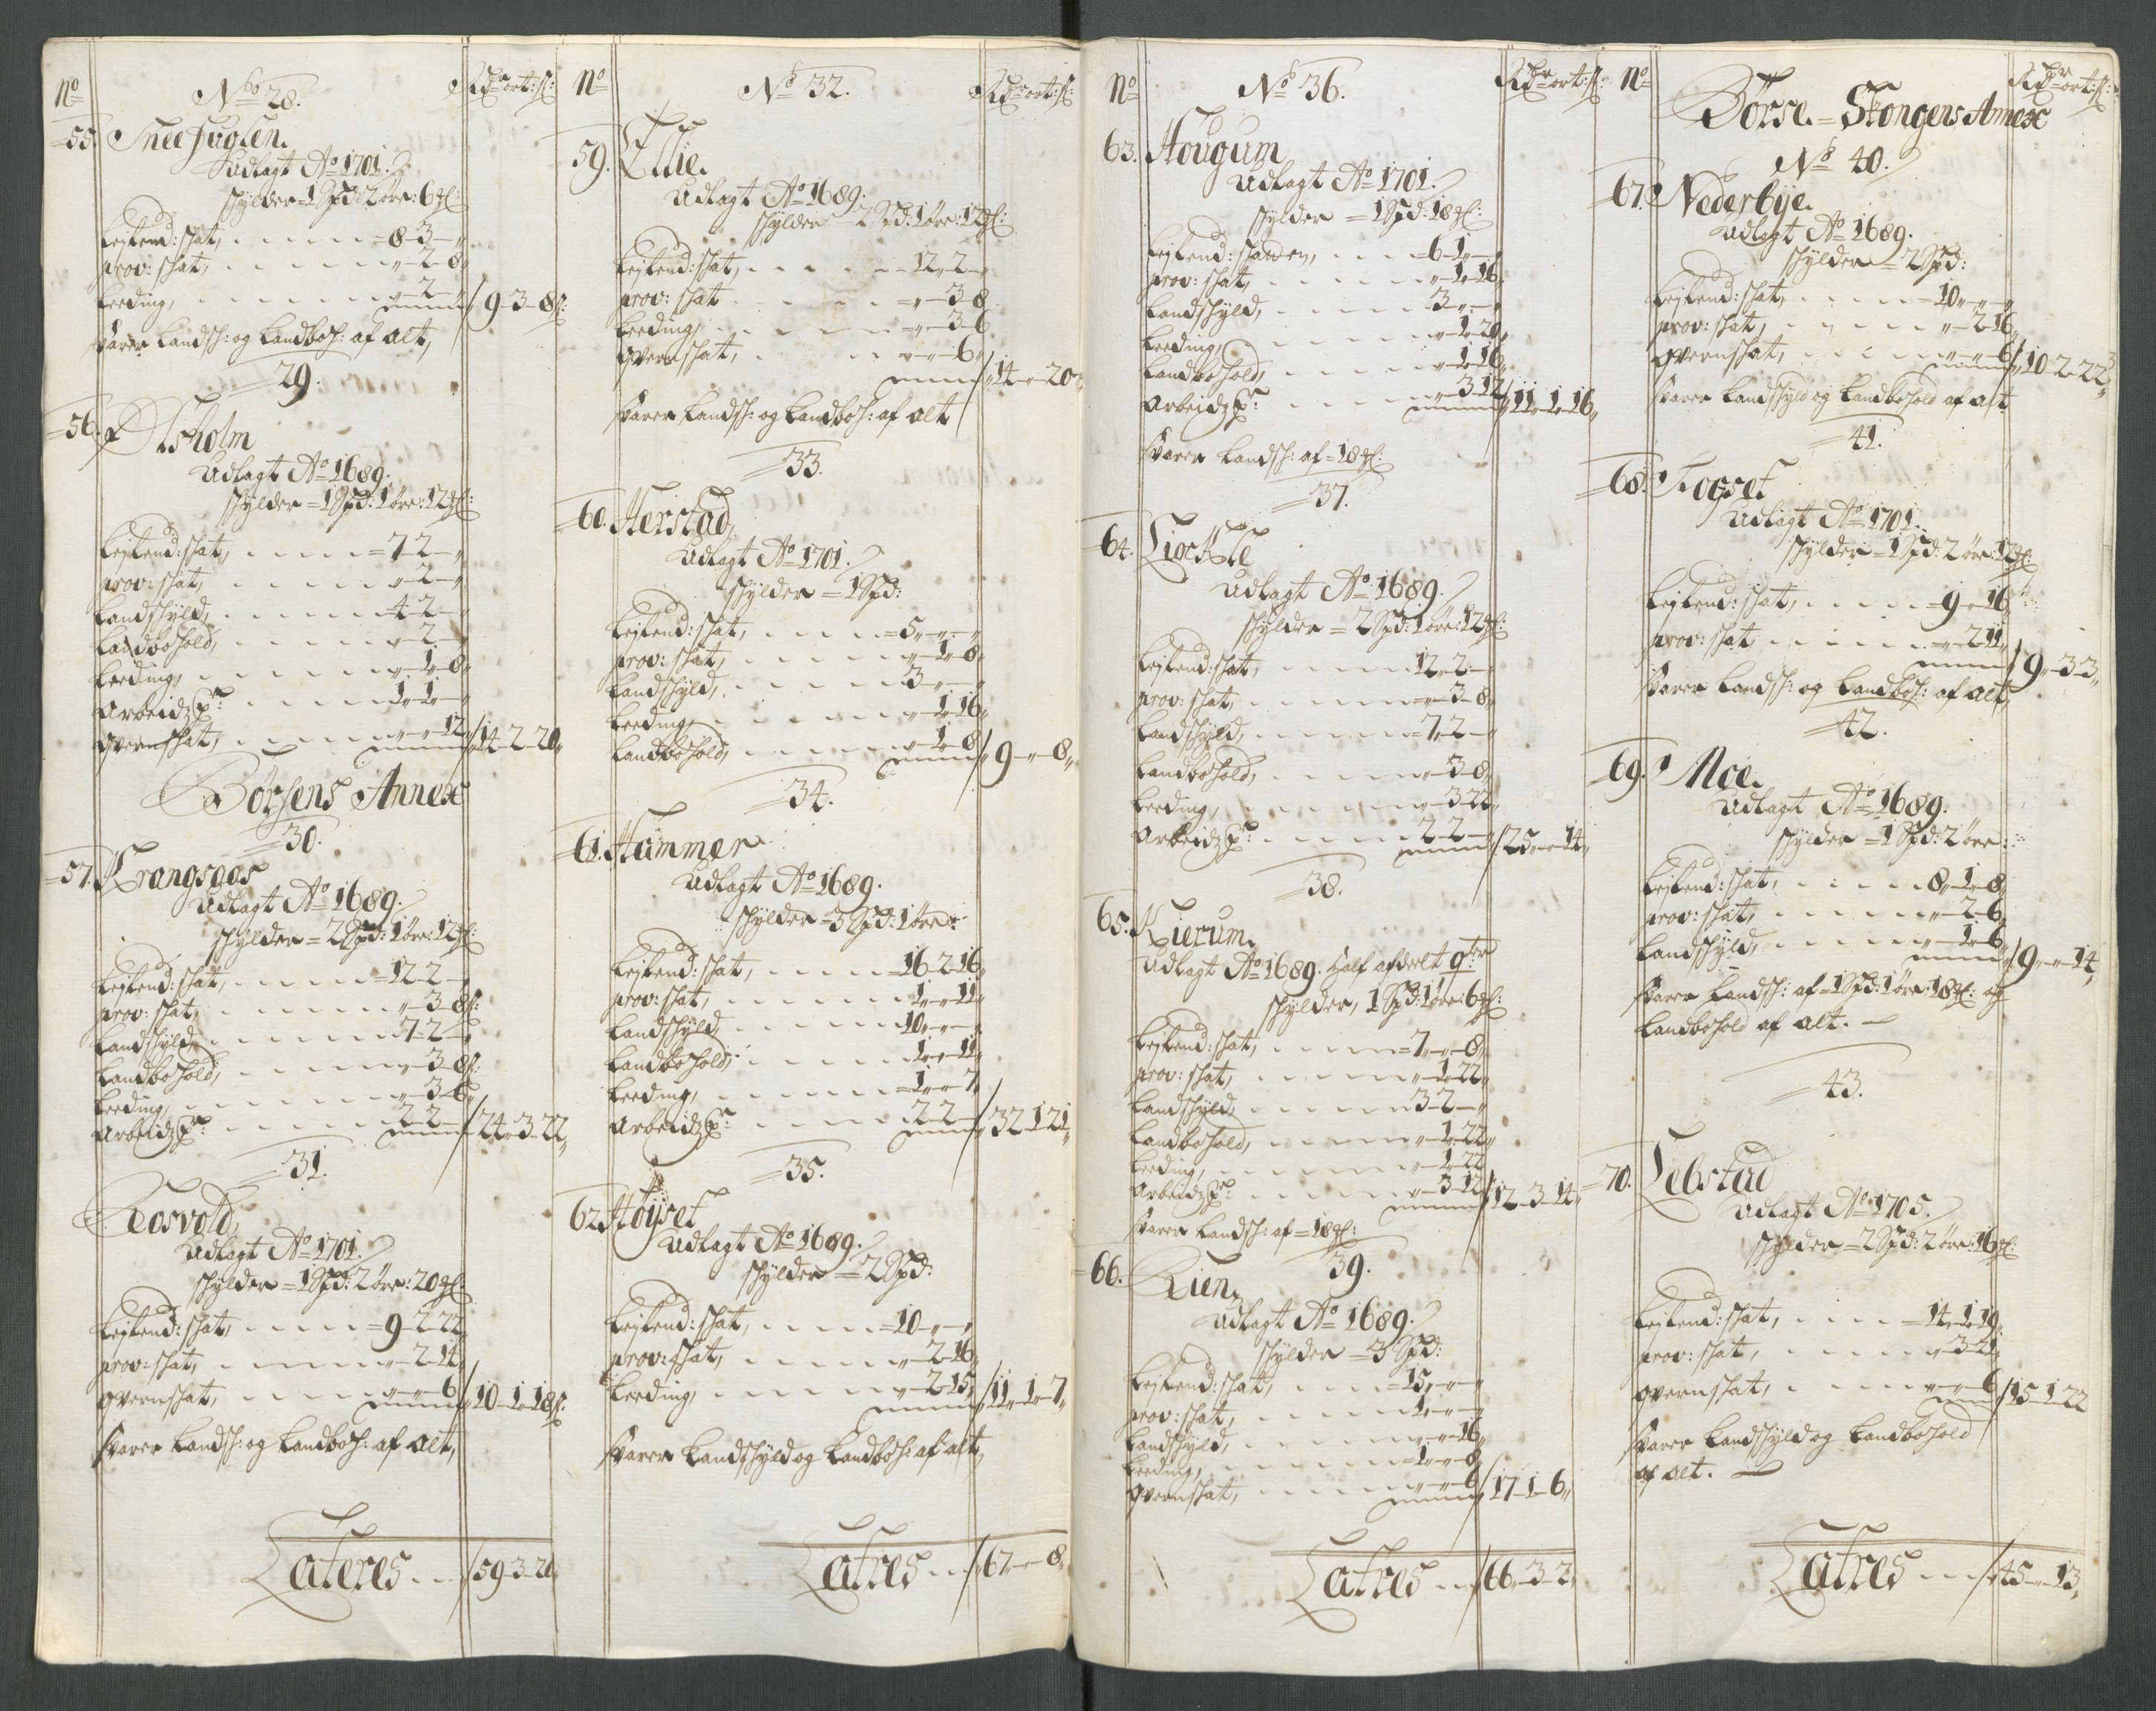 No
No 28.
Rdr ort: s:
55. Sneefuglen.
Udlagt Ao 1701.
skylder = 1 Spd: 2 øre: 6 gl:
Lejlend: skat, . . . . = 8-3-"
prov: skat, . . . . "-2-8"
Leeding, . . . . "-2-"
/ 9-3-8 s:
svarer Landsk: og Landboh: af alt,
29.
56. Olsholm
Udlagt Ao 1689.
skylder = 1 Spd: 1 øre: 12 gl:
Lejlend: skat, . . . . = 7-2-"
prov: skat, . . . . "-2-"
Landskyld, . . . . 4-2-"
Landbohold, . . . . "-2-"
Leeding, . . . . "-1-8"
Arbeidz pr: . . . . 1-1-"
qvernskat, . . . . "-"-12 / 14-2-20"
Børsens Annex
30.
57. Krangsaas
Udlagt Ao 1689.
skylder = 2 Spd: 1 øre: 12 gl:
Lejlend: skat, . . . . = 12-2-"
prov: skat, . . . . "-3-8 s:
Landskyld, . . . . 7-2-"
Landbohold, . . . . "-3-8 s:
Leeding, . . . . "-3-6"
Arbeidz pr: . . . . 2-2-" / 24-3-22"
31.
Rosvold,
Udlagt Ao 1701.
skylder = 1 Spd: 2 øre: 20 gl:
Lejlend: skat, . . . . = 9-2-22
prov: skat, . . . . "-2-14"
qvernskat, . . . . "-"-6 / 10-1-18 s:
svarer Landsk: og Landboh: af alt,
Lateres . . / 59-3-2"
No
No 32.
Rdr ort: s:
59. Ellie.
Udlagt Ao 1689.
skylder 2 Spd: 1 øre: 12 gl:
Lejlend: skat, . . . . = 12-2-"
prov: skat . . . . = "-3-8
Leeding, . . . . "-3-6
qvernskat, . . . . "-"-6"
/ 14-"-20"
svarer Landsk: og Landboh: af alt
33.
60. Herstad,
Udlagt Ao 1701.
skylder = 1 Spd:
Lejlend: skat, . . . . = 5-"-"
prov: skat, . . . . "-1-8"
Landskyld, . . . . 3-"-"
Leeding, . . . . "-1-16"
Landbohold, . . . . "-1-8" / 9-"-8"
34.
61. Hammer
Udlagt Ao 1689.
skylder = 3 Spd: 1 øre:
Lejlend: skat, . . . . = 16-2-16"
prov: skat, . . . . 1-"-11"
Landskyld, . . . . 10-"-"
Landbohold, . . . . 1-"-11"
Leeding, . . . . = 1-"-7"
Arbeidz pr: . . . . 2-2-" / 32-1-21"
35.
62. Høyset
Udlagt Ao 1689.
skylder = 2 Spd:
Lejlend: skat, . . . . = 10-"-"
prov: skat, . . . . "-2-16"
Leeding, . . . . "-2-15" / 11-1-7"
svarer Landskyld og Landboh: af alt,
Latres . . / 67-"-8"
No
No 36.
Rdr ort: s:
63. Hougum
Udlagt Ao 1701.
skylder = 1 Spd: 18 gl:
Lejlend: skatten, . . . . = 6-1-"
prov: skat, . . . . "-1-16"
Landskyld, . . . . 3-"-"
Leeding, . . . . "-1-20"
Landbohold, . . . . "-1-16"
Arbeidz pr: . . . . "-3-12 / 11-1-16"
svarer Landsk: af = 18 gl:
37.
64. Liøckle
Udlagt Ao 1689.
skylder = 2 Spd: 1 øre: 12 gl:
Lejlend: skat, . . . . 12-2-"
prov: skat, . . . . "-3-8"
Landskyld, . . . . = 7-2-"
Landbohold, . . . . "-3-8"
Leeding, . . . . "-3-22"
Arbeidz pr: . . . . 2-2-" / 25-"-14"
38.
65. Kierum.
Udlagt Ao 1689. Half afdeelt
skylder, 1 Spd: 1 øre: 6 gl:
Lejlend: skat, . . . . = 7-"-8"
prov: skat, . . . . "-1-22"
Landskyld, . . . . 3-2-"
Landbohold, . . . . "-1-22"
Leeding, . . . . "-1-22
Arbeidz pr: . . . . "-3-12 / 12-3-14"
svarer Landsk: af = 18 gl:
39.
66. Rien,
Udlagt Ao 1689.
skylder = 3 Spd:
Lejlend: skat, . . . . = 15-"-"
prov: skat, . . . . 1-"-"
Landskyld, . . . . "-"-16"
Leeding, . . . . = 1-"-8"
qvernskat, . . . . "-"-6 / 17-1-6"
Latres . . / 66-3-2"
No
Rdr ort: s:
Børse = Skongens Annex
No 40.
67. Nederbye.
Udlagt Ao 1689.
skylder = 2 Spd:
Lejlend: skat, . . . . = 10-"-"
prov: skat, . . . . "-2-16"
qvernskat, . . . . "-"-6 / 10-2-22"
svarer Landskyld og Landbohold af alt
41.
68. Rogset
Udlagt Ao 1701.
skylder = 1 Spd: 2 øre: 12 gl:
Lejlend: skat, . . . . = 9-"-16
prov: skat . . . . "-2-11"
/ 9-3-3"
svarer Landsk: og Landboh: af alt,
42.
69. Moe.
Udlagt Ao 1689.
skylder = 1 Spd: 2 øre:
Lejlend: skat, . . . . 8-1-8"
prov: skat, . . . . "-2-6"
Landskyld, . . . . "-1-6" / 9-"-14"
svarer Landsk: af = 1 Spd: 1 øre: 18 gl: og
Landbohold af alt. —
43.
70. Lebstad
Udlagt Ao 1705.
skylder = 2 Spd: 2 øre: 16 gl:
Lejlend: skat, . . . . = 14-1-19"
prov: skat, . . . . "-3-21
qvernskat, . . . . "-"-6 / 15-1-22
svarer Landskyld og Landbohold
af alt. —
Latres . . / 45-"-13"